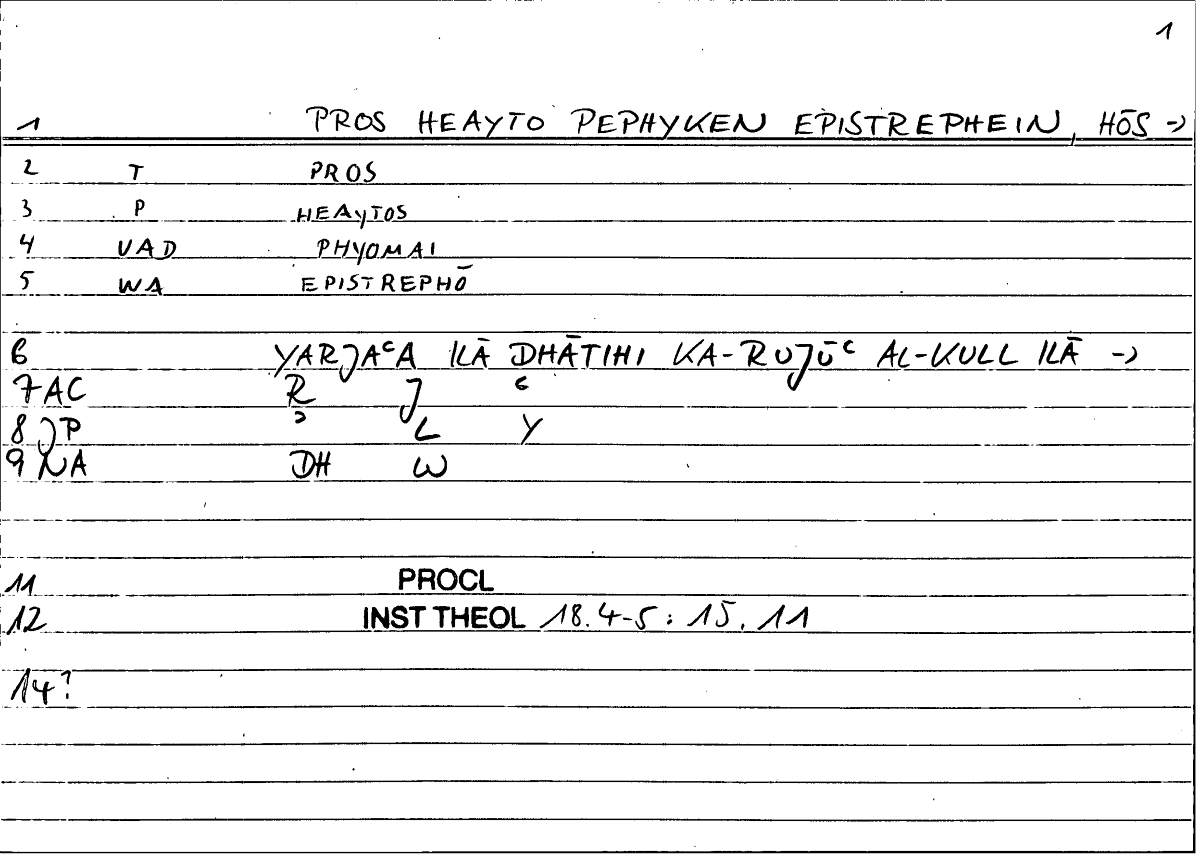 1
1 PROS HEAYTO PEPHYKEN EPISTREPHEIN, HŌS →
2 T PROS
3 P HEAYTOS
4 VAD PHYOMAI
5 WA EPISTREPHŌ
6 YARJAᶜA ILĀ DHĀTIHI KA-RUJŪᶜ AL-KULL ILĀ →
7 AC R J ᶜ
8 JP ᵓ L Y
9 NA DH W
11 PROCL
12 INST THEOL 18.4-5: 15.11
14?